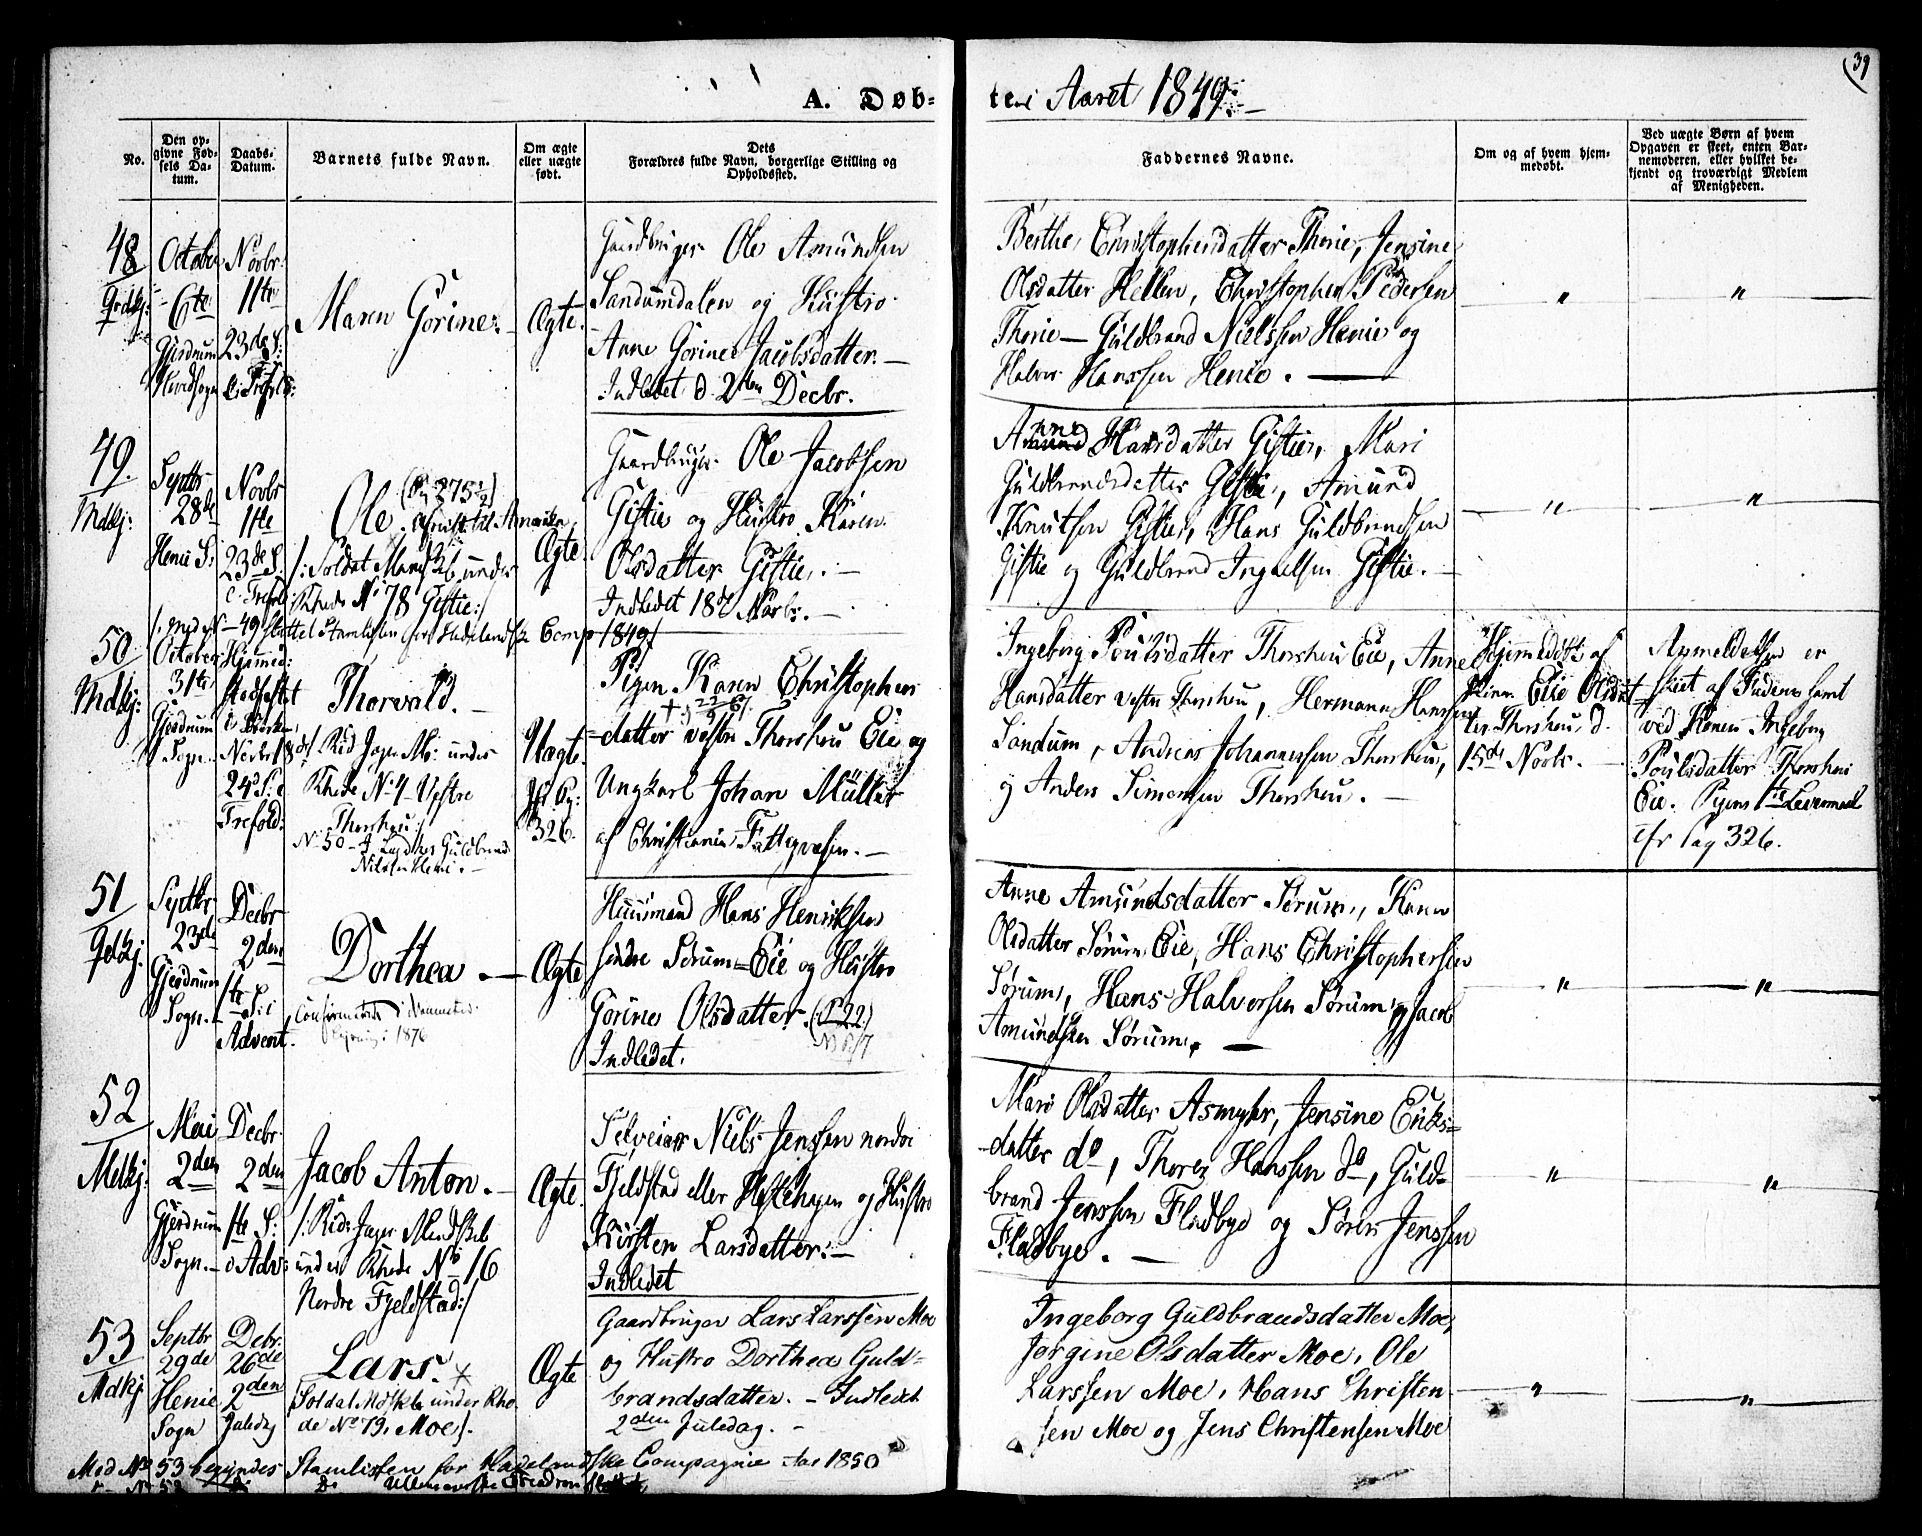 39
A. Døb-
te i Aaret 1849.
No.
Den op-
givne Fød-
sels Da-
tum.
Daabs-
Datum.
Barnets fulde Navn.
Om ægte
eller uægte
født.
Dets
Forældres fulde Navn, borgerlige Stilling og
Opholdssted.
Faddernes Navne.
Om og af hvem hjem-
medøbt.
Ved uægte Børn af hvem
Opgaven er skeet, enten Bar-
nemoderen, eller hvilket be-
kjendt og troværdigt Medlem
af Menigheden.
48
October
6te
Gjerdrum
Novbr.
11te
23de S:
Maren Gorine.
Ægte.
Gaardbruger Ole Amundsen
Sandumdalen og Hustro
Anne Gorine Jacobsdatter.
Indledet d. 2den Decbr.
Berthe Christophersdatter Thorie, Jensine
Olsdatter Hellen, Christopher Pedersen
Thorie — Guldbrand Nielssen Henie og
Halvor Hanssen Henie.
"
"
49.
Mdkj:
Septbr.
28de
Henie S:
Novbr
11te
23de S.
Ole.
(Pag 275½)
/: Soldat Mandskb under
Rhode No 78 Gistie:/
Ægte
Gaardbruger Ole Jacobsen
Gistie og Hustro Karen
Olsdatter Gistie.
Indledet 18de Novbr.
Anne Hansdatter Gistie, Mari
Guldbrandsdatter Gistie, Amund
Knutsen Gistie, Hans Guldbrandsen
Gistie og Guldbrand Ingvelsen Gistie.
"
"
/: Med No 49 sluttet Stamlisten for Hadelandske Comp 1849/
50
Mdkj:
October
31te
Gjerdrum
Sogn.
Hjemmed:
stadfæstet
i Kirken
Novbr 18de
24de S. e
Trefold:
Thorvald.
/: Rid Jæger Ms: under
Rhode No 4 Vestre
Thorshou:/
Uægte.
Jfr Pg:
326.
Pigen Karen Christophers
datter vestre Thorshou Eie og
Ungkarl Johan Müller
af Christiania Fattigvæsen.
Ingeborg Poulsdatter Thorshou Eie, Anne
Hansdatter vestre Thorshou, Hermann Hanssen
Sandum, Andreas Johannessen Thorshou,
og Anders Simensen Thorshou.
Hjemmedøbt af
Konen Elie Olsdat
ter Thorshou, d.
15de Novbr.
Anmeldelsen er
skeet af Faderen samt
ved Konen Ingeborg
Poulsdatter Thorshou
Eie. Pigens 1ste Leiermaal
cfr Pag 326.
51
Septbr
23de
Gjerdrum
Sogn.
Decbr
2den
1te S. i
Advent.
Dorthea.
Ægte
Huusmand Hans Henriksen
søndre Sørum-Eie og Hustro
Gorine Olsdatter. (P 22)
Indledet.
Anne Amundsdatter Sørum, Karen
Olsdatter Sørum Eie, Hans Christophersen
Sørum, Hans Halvorsen Sørum og Jacob
Amundsen Sørum.
"
"
52
Mdkj:
Mai
2den
Gjerdrum
Sogn.
Decbr.
2den
1te S:
i Adv:
Jacob Anton.
/: Rid. Jæger Mandskb
under Rhode No 16
Nordre Fjeldstad:/
Ægte.
Selveier Niels Jenssen nordre
Fjeldstad eller Hestehagen og Hustro
Kirsten Larsdatter.
Indledet
Mari Olsdatter Asmyhr, Jensine Eriks-
datter do, Thorer Hanssen do, Guld-
brand Jenssen Fladbye og Søren Jenssen
Fladbye.
"
"
53
Mdkj
Septbr
29de
Henie
Sogn
Debr.
26de
2den
Juledg
Lars.
(Soldat Mdskb under Rho-
de No 79, Moe).
Ægte
Gaardbruger Lars Larssen Moe
og Hustro Dorthea Guld-
brandsdatter. – Indledet
2den Juledag.
Ingeborg Guldbrandsdatter Moe,
Jørgine Olsdatter Moe, Ole
Larssen Moe, Hans Christen
sen Moe og Jens Christensen Moe
"
"
Med No 53 begyndes Stamlisten for Hadelandske Compagnie for 1850